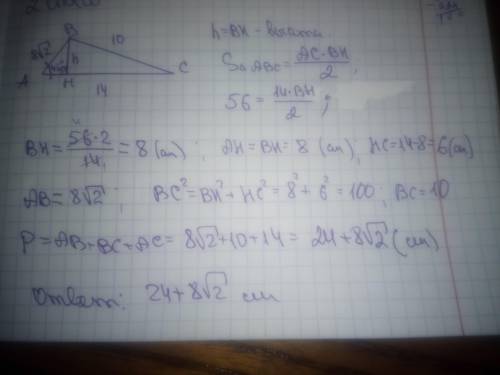 B
8√2
10
h
A
H
C
14
h = BH - высота
S△ABC = AC·BH / 2,
56 = 14·BH / 2 ;
BH = 56·2 / 14 = 8 (см) ; AH = BH = 8 (см), HC = 14-8 = 6 (см)
AB = 8√2 ; BC² = BH² + HC² = 8² + 6² = 100 ; BC = 10
P = AB + BC + AC = 8√2 + 10 + 14 = 24 + 8√2 (см)
Ответ: 24 + 8√2 см